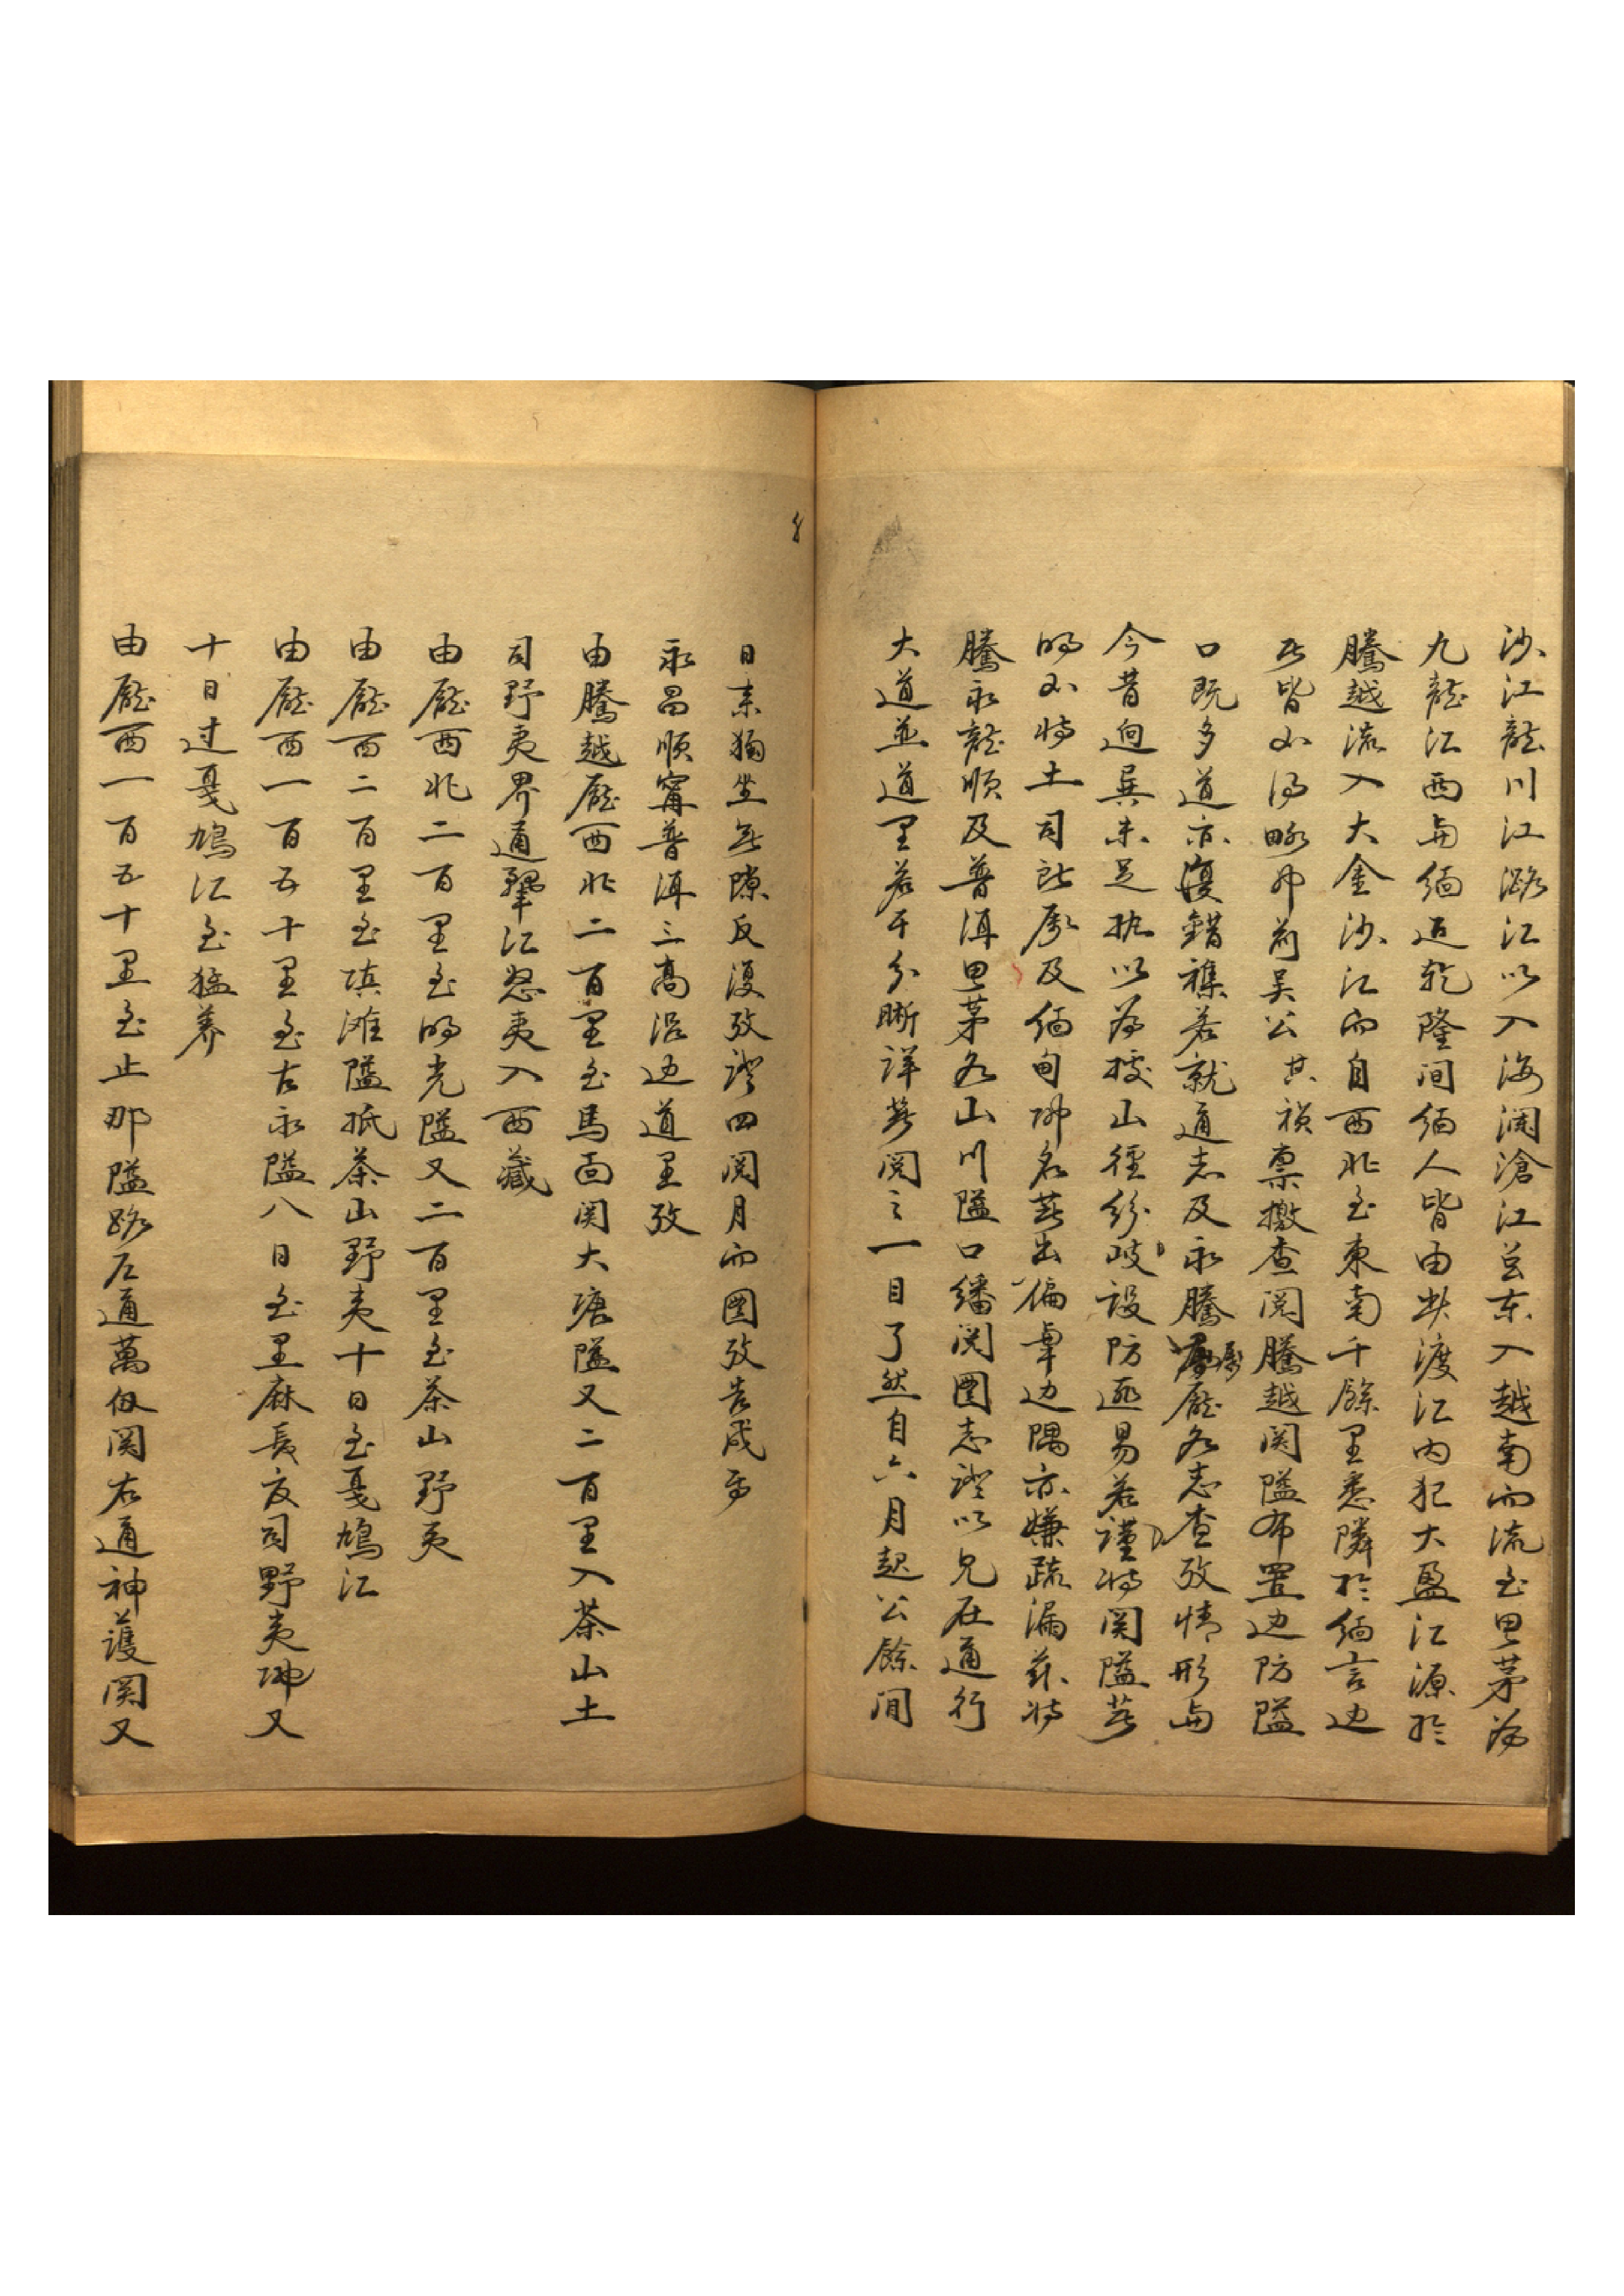 沙江龍川江潞江以入海瀾滄江岂东入越南而流至思茅为
九龍江西与緬近乾隆间緬人皆由此渡江内犯大盈江源於
騰越流入大金沙江而自西北至東南千餘里悉隣於緬言边
匕皆不得略也前吴公其祯禀檄查閲騰越関隘布置边防隘
口既多道亦復錯襍若就通志及永騰廳各志查攷情形与
今昔迥異未足执以为據山徑紛岐設防匪易若谨将関隘著
明不将土司所属及緬甸地名載出偏单边隅亦嫌疏漏兹将
騰永龍順及普洱思茅各山川隘口繙閲圖志證以兄在通行
大道並道里若干分晰詳著閲之一目了然自六月起公餘间
日来獨坐無隙反復攷證四閲月而圖攷告成焉
永昌順寧普洱三高沿边道里攷
由騰越廳西北二百里至馬面関大塘隘又二百里入茶山土
司野夷界通鞏江怒夷入西藏
由廳西北二百里至明光隘又二百里至茶山野夷
由廳西二百里至滇滩隘抵茶山野夷十日至戛鳩江
由廳西一百五十里至古永隘八日至里麻長官司野夷地又
十日过戛鳩江至猛养
由廳西一百五十里至止那隘路左通萬仞関右通神護関又